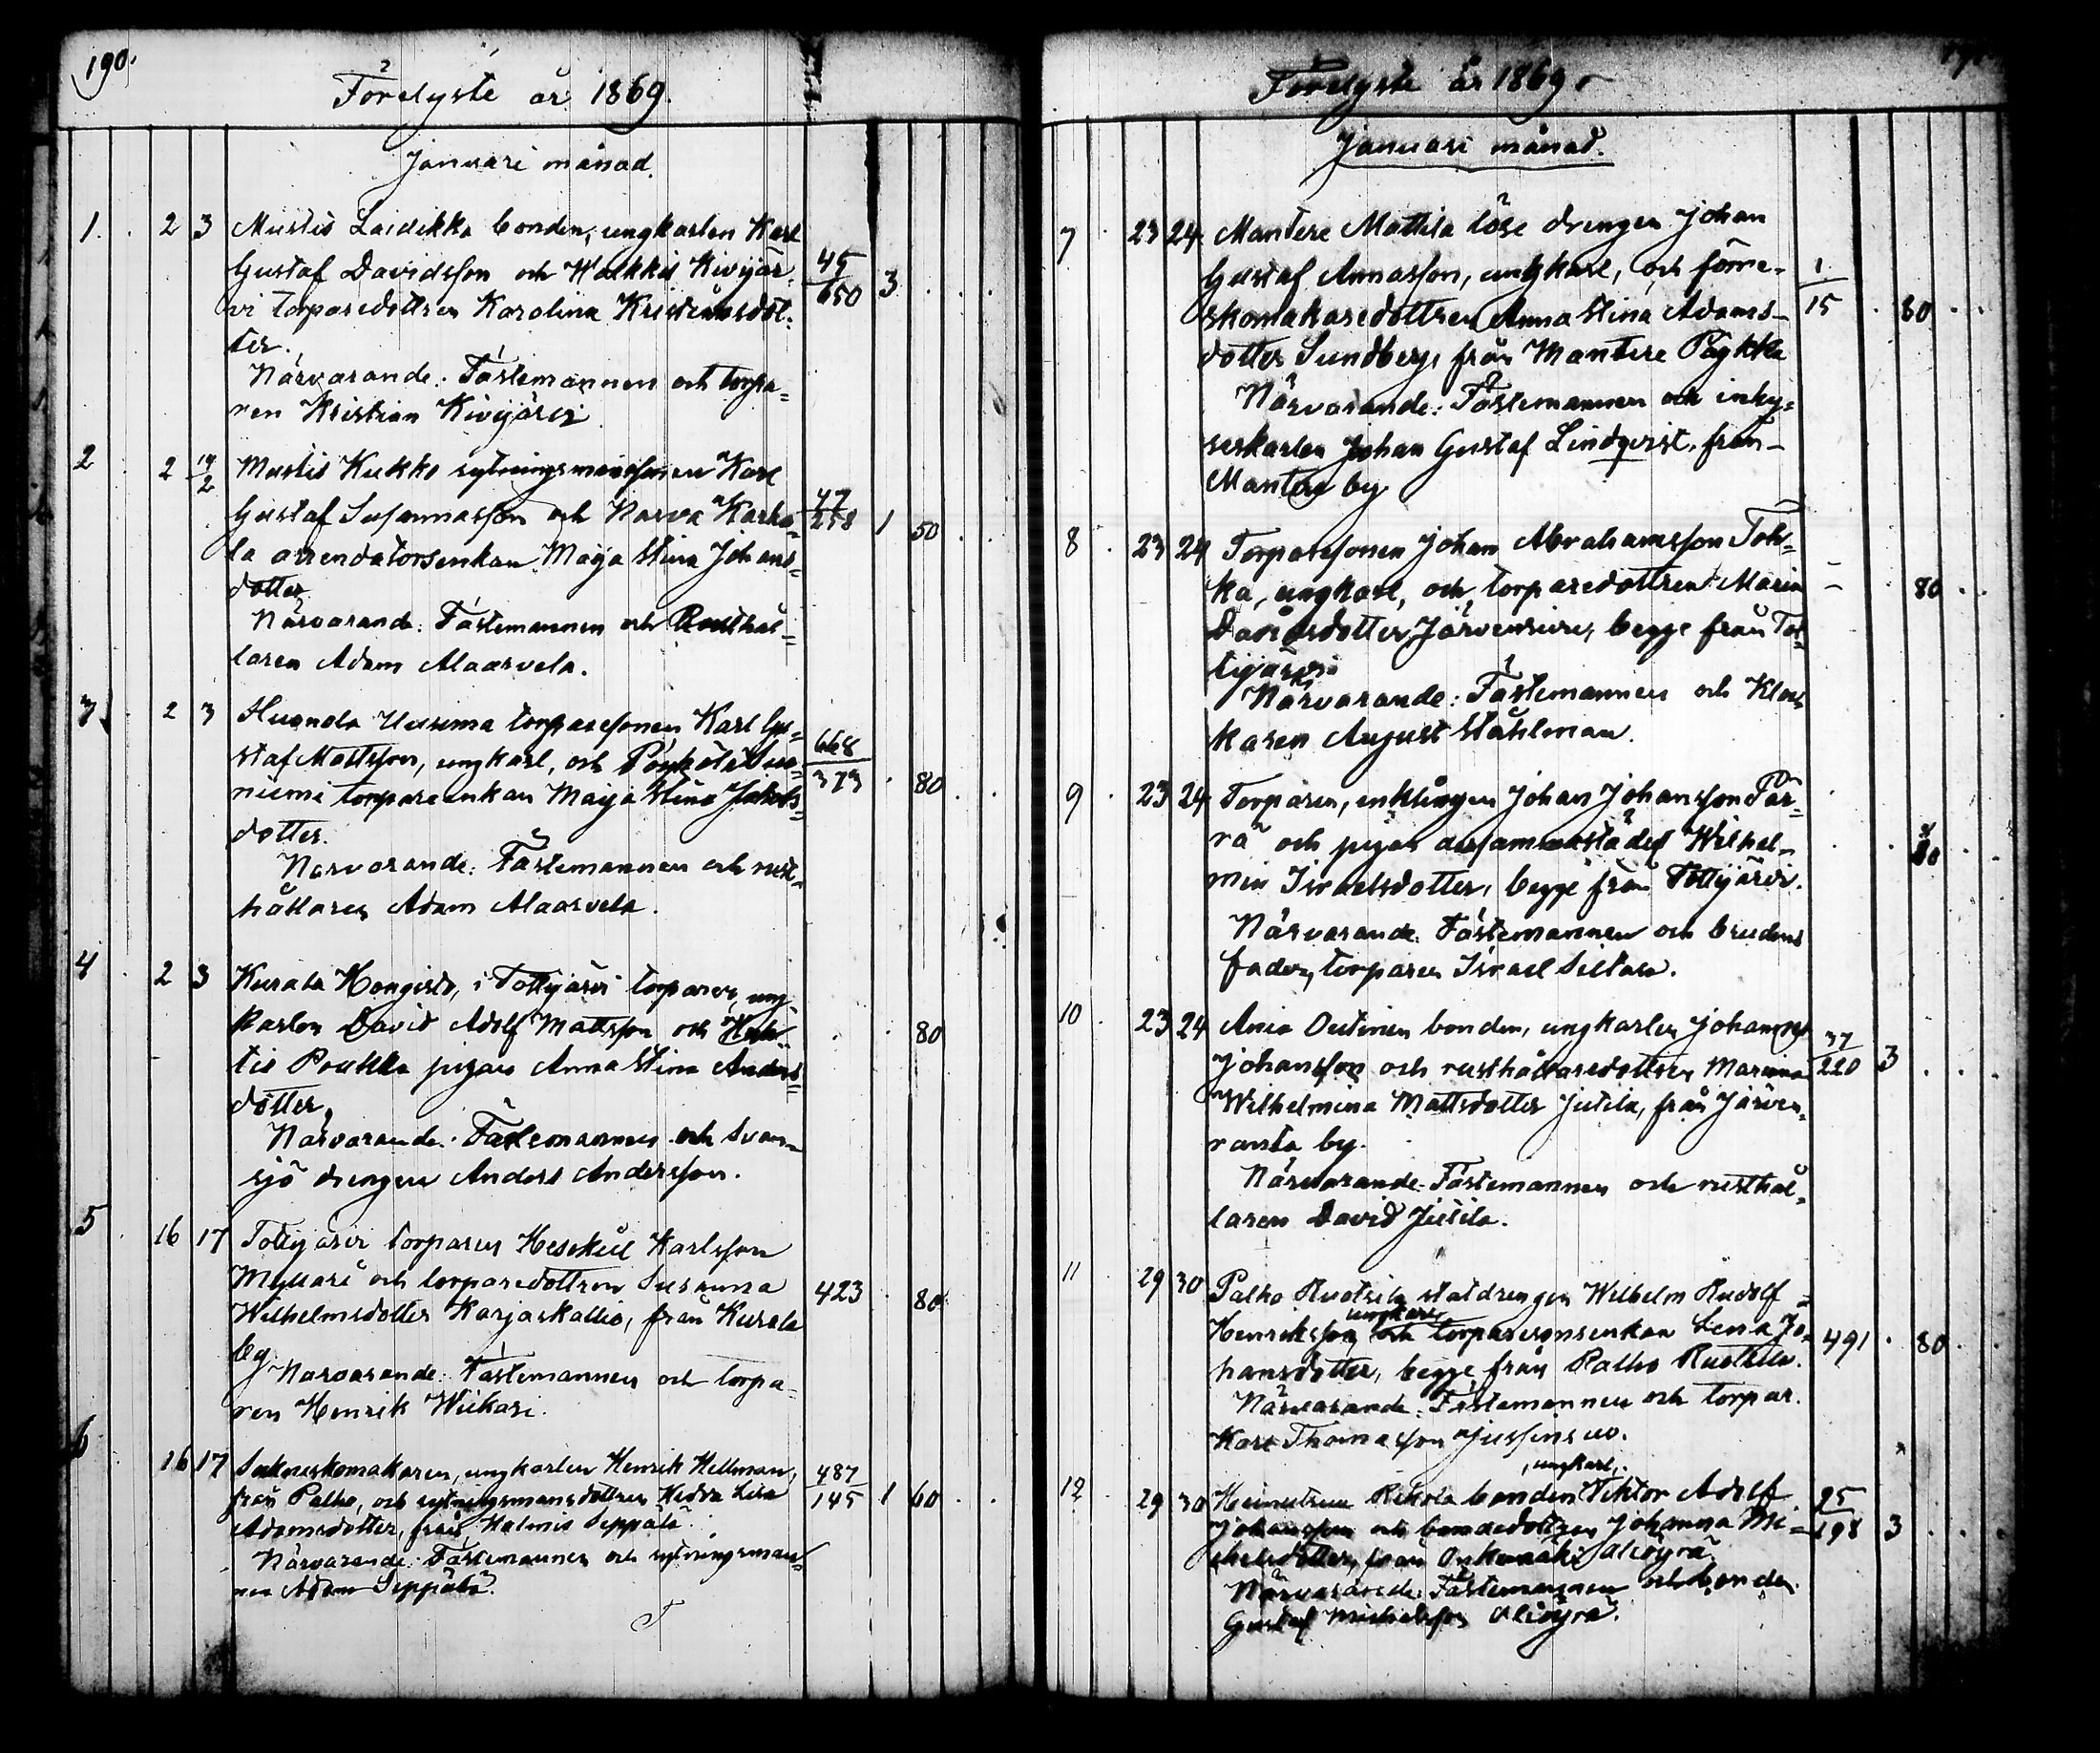 190.
Förelyste år 1869.
Januari månad.
1 . 2 3 Mustis Laidikka bonden, ungkarlen Karl
Gustaf Davidsson och Walkkis Kivijär- 45
vi torparedottren Karolina Kristiansdot- 650 3
ter.
Närvarande: Fästemannen och torpa-
ren Kristian Kivijärvi
2 . 2 Mustis Kukko sytningsmanssonen Karl
Gustaf Susannasson och Narva Karka- 47
la arrendatorsenkan Maija Stina Johans- 258 1 50
dotter
Närvarande: Fästemannen och Rusthål-
laren Adam Alaarvela.
3 2 3 Torparesonen Karl Gu-
staf Mattsson, ungkarl, och 668
niemi torpareenkan Maija Stina Jakobs- 373 80
dotter.
Närvarande: Fästemannen och rust-
hållaren Adam Alaarvela.
4 . 2 3 Kurala Hongisto, i Tottijärvi torparen, ung-
karlen David Adolf Mattsson och 80
tis Poukka pigan Anna Stina Anders-
dotter.
Närvarande: Fästemannen och Svan-
sjö drengen Anders Andersson.
5 . 16 17 Tottijärvi torparen Hesekiel Karlsson
Myllari och torparedottren Susanna 423 80
Wilhelmsdotter Karjaskallio, från Kurala
by.
Närvarande: Fästemannen och torpa-
ren Henrik Wiikari.
6 16 17 Sockneskomakaren, ungkarlen Henrik Hellman, 487
från Palho, och sytningsmansdottren Hedda Lisa 145 1 60
Adamsdotter, från Halmis Seppälä
Närvarande: Fästemannen och sytningsman-
nen Adam Seppälä.
Förelyste år 1869
Januari månad.
7 . 23 24 Mantere Mattila löse drengen Johan
Gustaf Annasson, ungkarl, och förre- 1
skomakaredottren Anna Stina Adams- 15 80
dotter Sundberg, från Mantere Pågkka
Närvarande: Fästemannen och inhy-
seskarlen Johan Gustaf Lindqvist, från
Mantere by
8 . 23 24 Torparesonen Johan Abrahamsson Toh-
ka, ungkarl, och torparedottren Maria 80
Davidsdotter begge från Tot-
tijärvi
Närvarande: Fästemannen och Kloc-
karen August Ståhlman.
9 . 23 24 Torparen, enklingen Johan Johansson Pär-
rä och pigan dersammastädes Wilhel- 80
mina Israelsdotter, begge från Tottijärvi.
Närvarande: Fästemannen och brudens
fader, torparen Israel Siltari.
10 . 23 24 Ania Outinen bonden, ungkarlen Johannes 37
Johansson och rusthållaredottren Marina 220 3
Wilhelmina Mattsdotter Jutila, från Järven-
ranta by.
Närvarande: Fästemannen och rusthål-
laren David Jutila.
11 . 29 30 Palho Ruotsila statdrengen Wilhelm Rudolf
Henriksson, ungkarl, och torparesonsenkan Lena Jo- 491 80
hansdotter, begge från Palho Ruotsila.
Närvarande: Fästemannen och torpar.
Karl Thomasson
12 29 30 Rekola bonden, ungkarl, Viktor Adolf 25
Johansson och bondedottren Johanna Mi- 198 3
chelsdotter, från
Närvarande: Fästemannen och bonden
Gustaf Michelsson